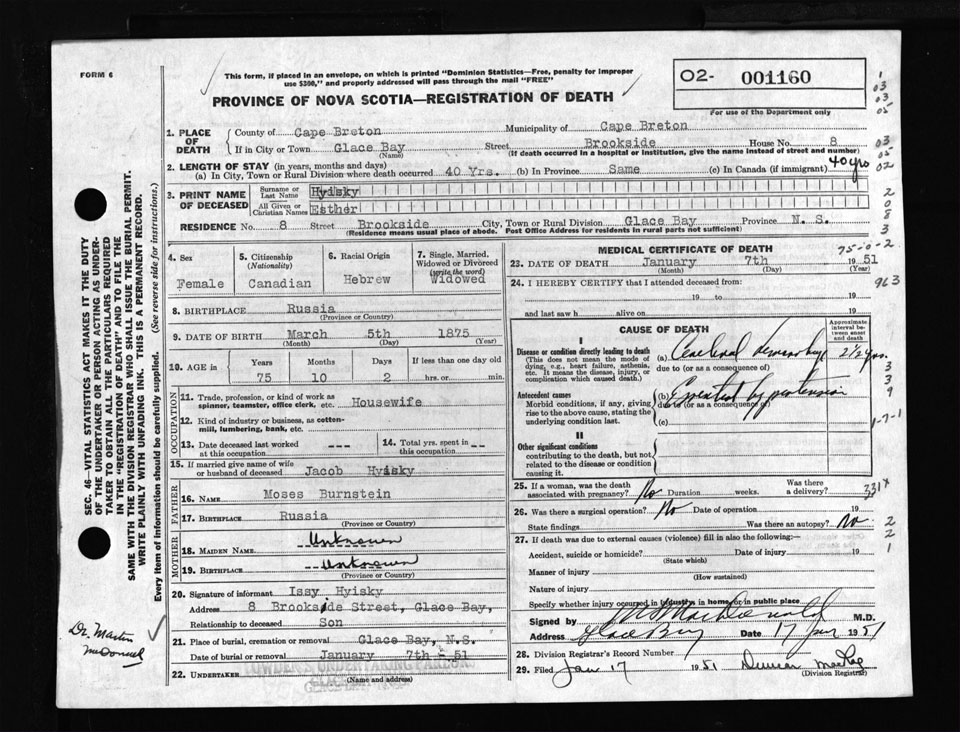 FORM 6
This form, if placed in an envelope, on which is printed "Dominion Statistics—Free, penalty for improper
use $300," and properly addressed will pass through the mail "FREE"
PROVINCE OF NOVA SCOTIA—REGISTRATION OF DEATH
O2- 001160
For use of the Department only
1. PLACE OF DEATH
County of Cape Breton Municipality of Cape Breton
If in City or Town Glace Bay Street Brookside House No. 8
(Name) (If death occurred in a hospital or institution, give the name instead of street and number)
2. LENGTH OF STAY (in years, months and days)
(a) In City, Town or Rural Division where death occurred 40 Yrs. (b) In Province Same (c) In Canada (if immigrant) 40 yrs
3. PRINT NAME OF DECEASED
Surname or Last Name Hyisky
All Given or Christian Names Esther
RESIDENCE No. 8 Street Brookside City, Town or Rural Division Glace Bay Province N. S.
(Residence means usual place of abode. Post Office Address for residents in rural parts not sufficient)
4. Sex Female
5. Citizenship (Nationality) Canadian
6. Racial Origin Hebrew
7. Single, Married, Widowed or Divorced (write the word) Widowed
8. BIRTHPLACE Russia
(Province or Country)
9. DATE OF BIRTH March 5th 1875
(Month) (Day) (Year)
10. AGE in Years 75 Months 10 Days 2 If less than one day old hrs. or min.
OCCUPATION
11. Trade, profession, or kind of work as spinner, teamster, office clerk, etc. Housewife
12. Kind of industry or business, as cotten-mill, lumbering, bank, etc.
13. Date deceased last worked at this occupation ---
14. Total yrs. spent in this occupation --
15. If married give name of wife or husband of deceased Jacob Hyisky
FATHER
16. NAME Moses Burnstein
17. BIRTHPLACE Russia
(Province or Country)
MOTHER
18. MAIDEN NAME Unknown
19. BIRTHPLACE Unknown
(Province or Country)
20. Signature of informant Issy Hyisky
Address 8 Brookside Street, Glace Bay,
Relationship to deceased Son
21. Place of burial, cremation or removal Glace Bay, N.S.
Date of burial or removal January 7th - 51
22. UNDERTAKER
(Name and address)
MEDICAL CERTIFICATE OF DEATH
75-0-2
23. DATE OF DEATH January 7th 1951
(Month) (Day) (Year)
24. I HEREBY CERTIFY that I attended deceased from:
19 to 19
and last saw h alive on 19
963
CAUSE OF DEATH
Approximate interval between onset and death
I
Disease or condition directly leading to death
(This does not mean the mode of dying, e.g., heart failure, asthenia, etc. It means the disease, injury, or complication which caused death.)
(a) Cerebral hemorrhage 2 1/2 yrs.
due to (or as a consequence of)
Antecedent causes
Morbid conditions, if any, giving rise to the above cause, stating the underlying condition last.
(b) Essential hypertension
due to (or as a consequence of)
(c)
II
Other significant conditions
contributing to the death, but not related to the disease or condition causing it.
25. If a woman, was the death associated with pregnancy? No Duration weeks. Was there a delivery?
331x
26. Was there a surgical operation? No Date of operation 19
State findings Was there an autopsy? No
27. If death was due to external causes (violence) fill in also the following:—
Accident, suicide or homicide? Date of injury 19
(State which)
Manner of injury
(How sustained)
Nature of injury
Specify whether injury occurred in industry, in home, or in public place
Signed by M.D.
Address Glace Bay Date 17 Jan 1951
28. Division Registrar's Record Number
29. Filed Jan 17 1951
(Division Registrar)
SEC. 46—VITAL STATISTICS ACT MAKES IT THE DUTY
OF THE UNDERTAKER OR PERSON ACTING AS UNDER-
TAKER TO OBTAIN ALL THE PARTICULARS REQUIRED
IN THE "REGISTRATION OF DEATH" AND TO FILE THE
SAME WITH THE DIVISION REGISTRAR WHO SHALL ISSUE THE BURIAL PERMIT.
WRITE PLAINLY WITH UNFADING INK. THIS IS A PERMANENT RECORD.
Every item of information should be carefully supplied. (See reverse side for instructions.)
Dr. Martin
McDonnell